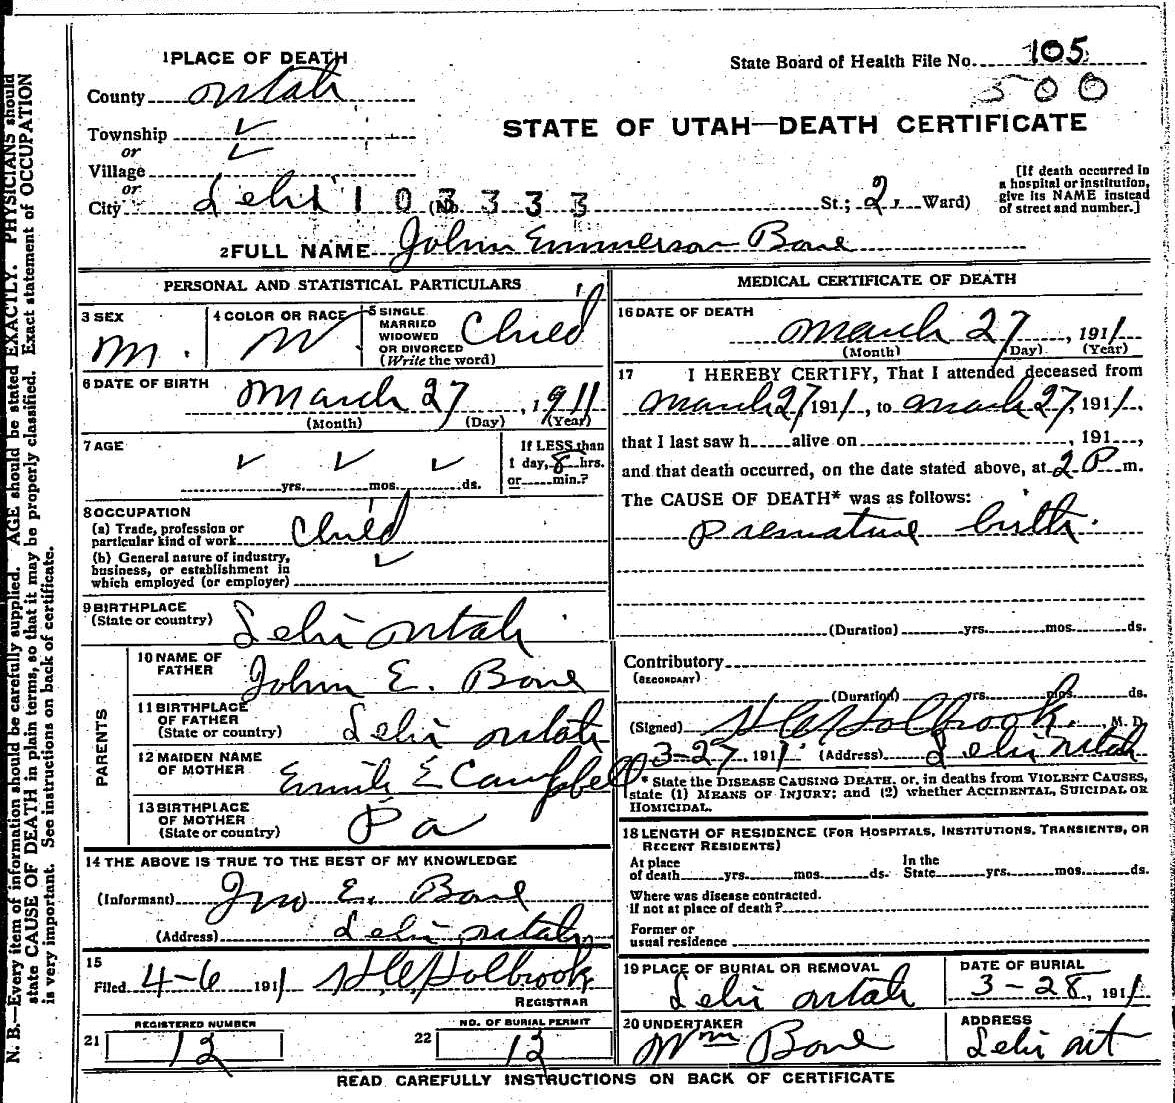 1 PLACE OF DEATH
State Board of Health File No. 105
500
County Utah
STATE OF UTAH—DEATH CERTIFICATE
Township ✓
or
Village ✓
or
City Lehi 1103333 (No. St.; 2. Ward)
[If death occurred in
a hospital or institution,
give its NAME instead
of street and number.]
2 FULL NAME John Emmerson Bone
PERSONAL AND STATISTICAL PARTICULARS
3 SEX M.
4 COLOR OR RACE W
5 SINGLE
MARRIED
WIDOWED
OR DIVORCED
(Write the word) Child
6 DATE OF BIRTH March 27, 1911
(Month) (Day) (Year)
7 AGE ✓ yrs. ✓ mos. ✓ ds.
If LESS than
1 day, 8 hrs.
or min.?
8 OCCUPATION
(a) Trade, profession or
particular kind of work Child
(b) General nature of industry,
business, or establishment in
which employed (or employer) ✓
9 BIRTHPLACE
(State or country) Lehi Utah
PARENTS
10 NAME OF
FATHER John E. Bone
11 BIRTHPLACE
OF FATHER
(State or country) Lehi Utah
12 MAIDEN NAME
OF MOTHER E Campbell
13 BIRTHPLACE
OF MOTHER
(State or country) Pa
14 THE ABOVE IS TRUE TO THE BEST OF MY KNOWLEDGE
(Informant) Jno E. Bone
(Address) Lehi Utah
15
Filed 4-6 1911 Holbrook
REGISTRAR
21 REGISTERED NUMBER 12
22 NO. OF BURIAL PERMIT 12
MEDICAL CERTIFICATE OF DEATH
16 DATE OF DEATH
March 27, 1911
(Month) (Day) (Year)
17 I HEREBY CERTIFY, That I attended deceased from
March 27, 1911, to March 27, 1911,
that I last saw h alive on , 191 ,
and that death occurred, on the date stated above, at 2 P m.
The CAUSE OF DEATH* was as follows:
Premature birth.
(Duration) yrs. mos. ds.
Contributory
(SECONDARY)
(Duration) yrs. mos. ds.
(Signed) Holbrook. , M. D.
3-27, 1911. (Address) Lehi Utah
* State the DISEASE CAUSING DEATH, or, in deaths from VIOLENT CAUSES,
state (1) MEANS OF INJURY; and (2) whether ACCIDENTAL, SUICIDAL OR
HOMICIDAL.
18 LENGTH OF RESIDENCE (FOR HOSPITALS, INSTITUTIONS, TRANSIENTS, OR
RECENT RESIDENTS)
At place
of death yrs. mos. ds. In the
State yrs. mos. ds.
Where was disease contracted.
if not at place of death?
Former or
usual residence
19 PLACE OF BURIAL OR REMOVAL
Lehi Utah
DATE OF BURIAL
3-28, 1911
20 UNDERTAKER
Wm Bone
ADDRESS
Lehi Ut
READ CAREFULLY INSTRUCTIONS ON BACK OF CERTIFICATE
N. B.—Every item of information should be carefully supplied. AGE should be stated EXACTLY. PHYSICIANS should
state CAUSE OF DEATH in plain terms, so that it may be properly classified. Exact statement of OCCUPATION
is very important. See instructions on back of certificate.